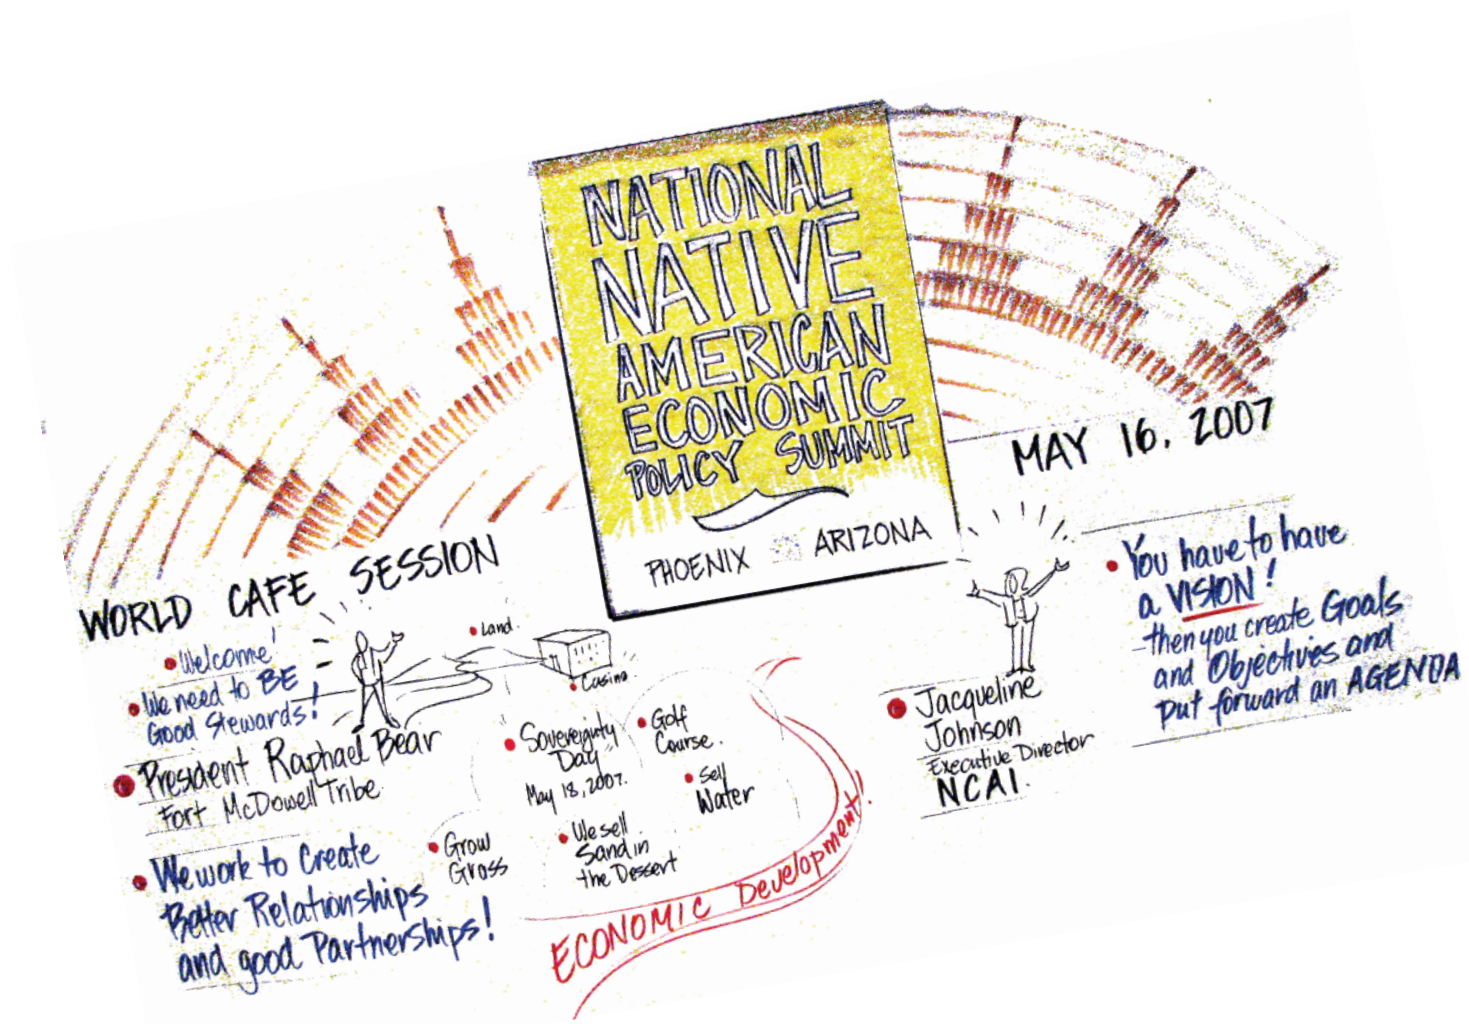 NATIONAL
NATIVE
AMERICAN
ECONOMIC
POLICY SUMMIT
PHOENIX ARIZONA
MAY 16, 2007
WORLD CAFE SESSION
Welcome!
We need to BE
Good Stewards!
President Raphael Bear
Fort McDowell Tribe
We work to Create
Better Relationships
and good Partnerships!
Land.
Casino.
Sovereignty
Day
May 18, 2007.
Golf
Course.
Sell
Water
Grow
Grass
We sell
Sand in
the Dessert
ECONOMIC Development!
Jacqueline
Johnson
Executive Director
NCAI.
You have to have
a VISION!
then you create Goals
and Objectives and
put forward an AGENDA